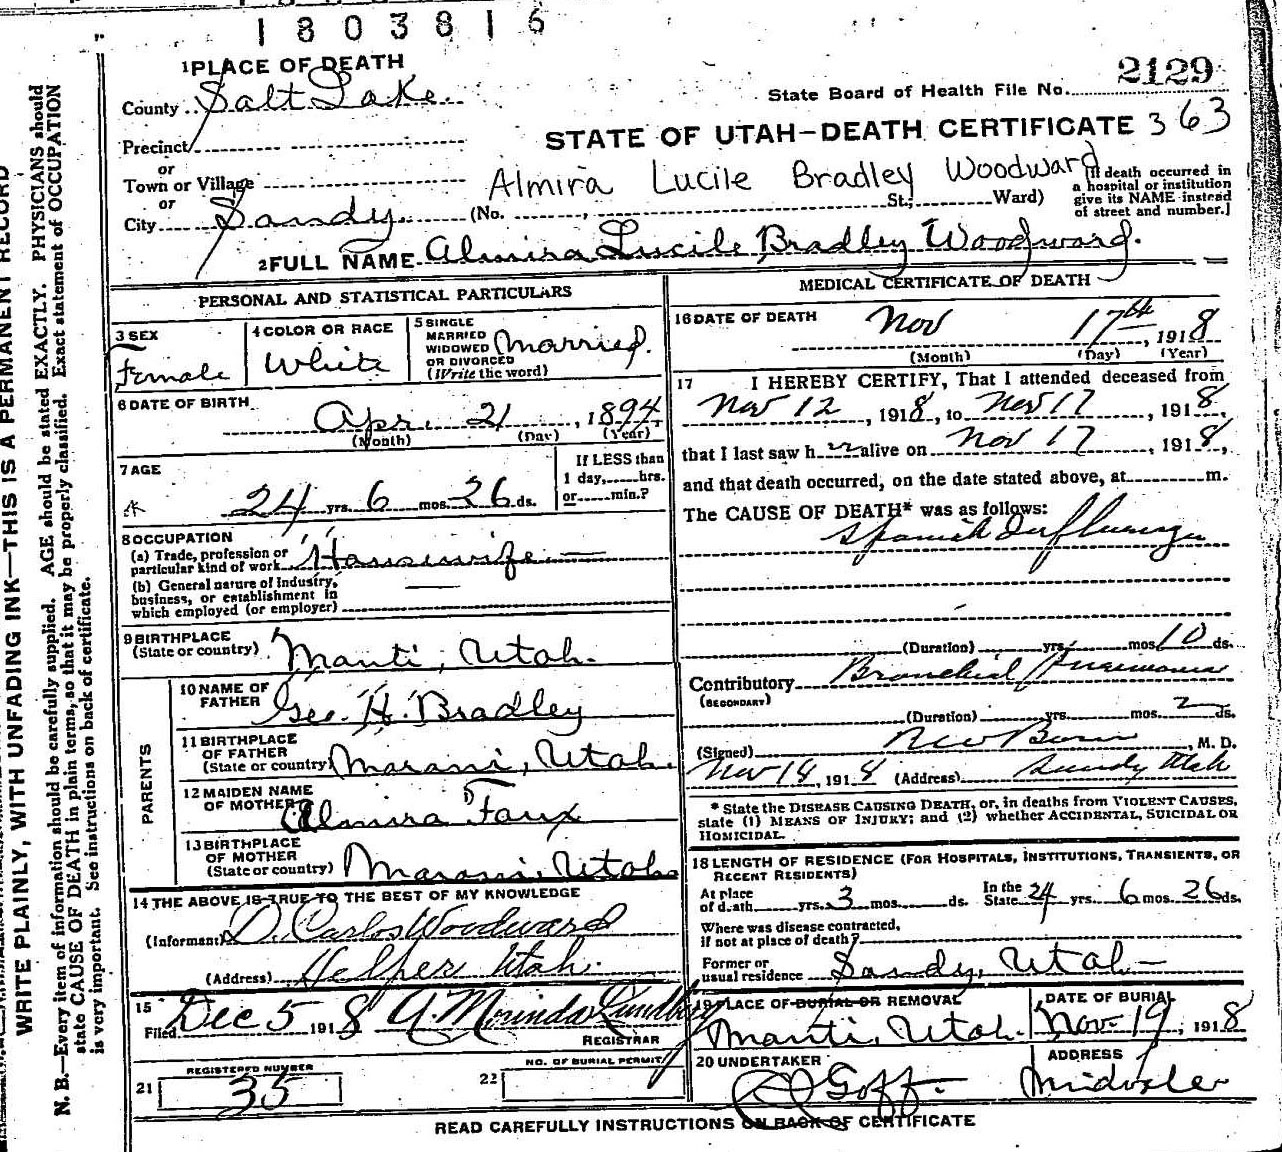 1803816
1 PLACE OF DEATH
County Salt Lake
2129
State Board of Health File No.
STATE OF UTAH-DEATH CERTIFICATE 363
Precinct
or
Town or Village
Almira Lucile Bradley Woodward
or
City Sandy (No. St.; Ward)
[If death occurred in
a hospital or institution
give its NAME instead
of street and number.]
2 FULL NAME Almira Lucile Bradley Woodward.
PERSONAL AND STATISTICAL PARTICULARS
3 SEX
Female
4 COLOR OR RACE
White
5 SINGLE
MARRIED
WIDOWED
OR DIVORCED
(Write the word)
Married.
6 DATE OF BIRTH
Apr. 21, 1894
(Month) (Day) (Year)
7 AGE
24 yrs. 6 mos. 26 ds.
If LESS than
1 day, hrs.
or min.?
8 OCCUPATION
(a) Trade, profession or
particular kind of work Housewife
(b) General nature of Industry,
business, or establishment in
which employed (or employer)
9 BIRTHPLACE
(State or country) Manti, Utah.
PARENTS
10 NAME OF
FATHER Geo. H. Bradley
11 BIRTHPLACE
OF FATHER
(State or country) Maroni, Utah.
12 MAIDEN NAME
OF MOTHER Almira Faux
13 BIRTHPLACE
OF MOTHER
(State or country) Maroni, Utah
14 THE ABOVE IS TRUE TO THE BEST OF MY KNOWLEDGE
(Informant) D. Carlos Woodward
(Address) Helper Utah.
15
Filed Dec 5 1918 A. Morinda Lundberg
REGISTRAR
REGISTERED NUMBER
21 35
NO. OF BURIAL PERMIT
22
MEDICAL CERTIFICATE OF DEATH
16 DATE OF DEATH Nov 17th, 1918
(Month) (Day) (Year)
17 I HEREBY CERTIFY, That I attended deceased from
Nov 12, 1918, to Nov 17, 1918,
that I last saw h er alive on Nov 17, 1918,
and that death occurred, on the date stated above, at m.
The CAUSE OF DEATH* was as follows:
Spanish Influenza
(Duration) yrs. mos. 10 ds.
Contributory Bronchial Pneumonia
(SECONDARY)
(Duration) yrs. mos. 2 ds.
(Signed) , M. D.
Nov 18, 1918 (Address) Sandy Utah
* State the DISEASE CAUSING DEATH, or, in deaths from VIOLENT CAUSES,
state (1) MEANS OF INJURY; and (2) whether ACCIDENTAL, SUICIDAL OR
HOMICIDAL.
18 LENGTH OF RESIDENCE (FOR HOSPITALS, INSTITUTIONS, TRANSIENTS, OR
RECENT RESIDENTS)
At place
of death yrs. 3 mos. ds.
In the
State 24 yrs. 6 mos. 26 ds.
Where was disease contracted,
if not at place of death?
Former or
usual residence Sandy, Utah
19 PLACE OF BURIAL OR REMOVAL
Manti, Utah.
DATE OF BURIAL
Nov. 19, 1918
20 UNDERTAKER
Goff.
ADDRESS
Midvale
READ CAREFULLY INSTRUCTIONS ON BACK OF CERTIFICATE
WRITE PLAINLY, WITH UNFADING INK—THIS IS A PERMANENT RECORD
N. B.—Every item of information should be carefully supplied. AGE should be stated EXACTLY. PHYSICIANS should
state CAUSE OF DEATH in plain terms, so that it may be properly classified. Exact statement of OCCUPATION
is very important. See instructions on back of certificate.